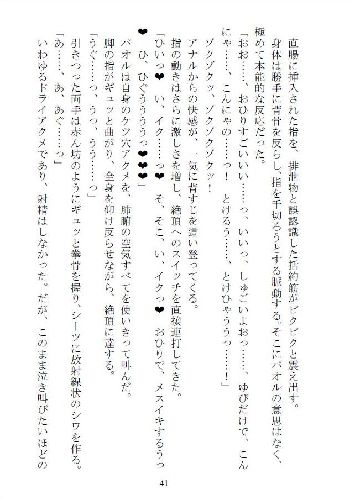 直腸に挿入された指を、排泄物と誤認識した括約筋がビクビクと震え出す。
身体は勝手に背骨を反らし、指を千切ろうとする脈動する。そこにパオルの意思はなく、
極めて本能的な反応だった。
「おお……、おひりすごいいい……っ、いいっ、しゅごいよお……、ゆびだけで、こん
にゃ……、こんにゃの……っ！　とけるう……、とけひゃううっ……！」
ゾクゾクッ、ゾクゾクゾクッ！
アナルからの快感が、一気に背すじを這い登ってくる。
指の動きはさらに激しさを増し、絶頂へのスイッチを直接連打してきた。
「ひいっ❤　い、イク……っ❤　そ、そこ、い、イクっ❤　おひりで、メスイキするうっ
❤　ひ、ひぐうううっ❤❤❤」
パオルは自身のケツ穴アクメを、肺腑の空気すべてを使いきって叫んだ。
脚の指がギュッと曲がり、全身を仰け反らせながら、絶頂に達する。
「うぐ……っ、うっ、うう……っ」
引きつった両手は赤ん坊のようにギュッと拳骨を握り、シーツに放射線状のシワを作る。
「あ……、あ、あぐ……っ」
いわゆるドライアクメであり、射精はしなかった。だが、このまま泣き叫びたいほどの
41